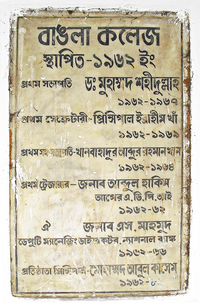 বাঙলা কলেজ
স্থাপিত-১৯৬২ ইং
প্রথম সভাপতি ডঃ মুহাম্মদ শহীদুল্লাহ
১৯৬২-১৯৬৭
প্রথম সেক্রেটারী-প্রিন্সিপাল ইব্রাহীম খাঁ
১৯৬২-১৯৬৯
প্রথম সহ সভাপতি-খানবাহাদুর আব্দুর রহমান খান
১৯৬২-১৯৬৪
প্রথম ট্রেজারার- জনাব আব্দুল হাকিম
১৯৬২-৬২
ঐ জনাব এস. মাহমুদ
ডেপুটি ম্যানেজিং ডাইরেক্টর, ন্যাশনাল ব্যাঙ্ক
প্রতিষ্ঠাতা প্রিন্সিপাল-মোহাম্মদ আবুল কাসেম